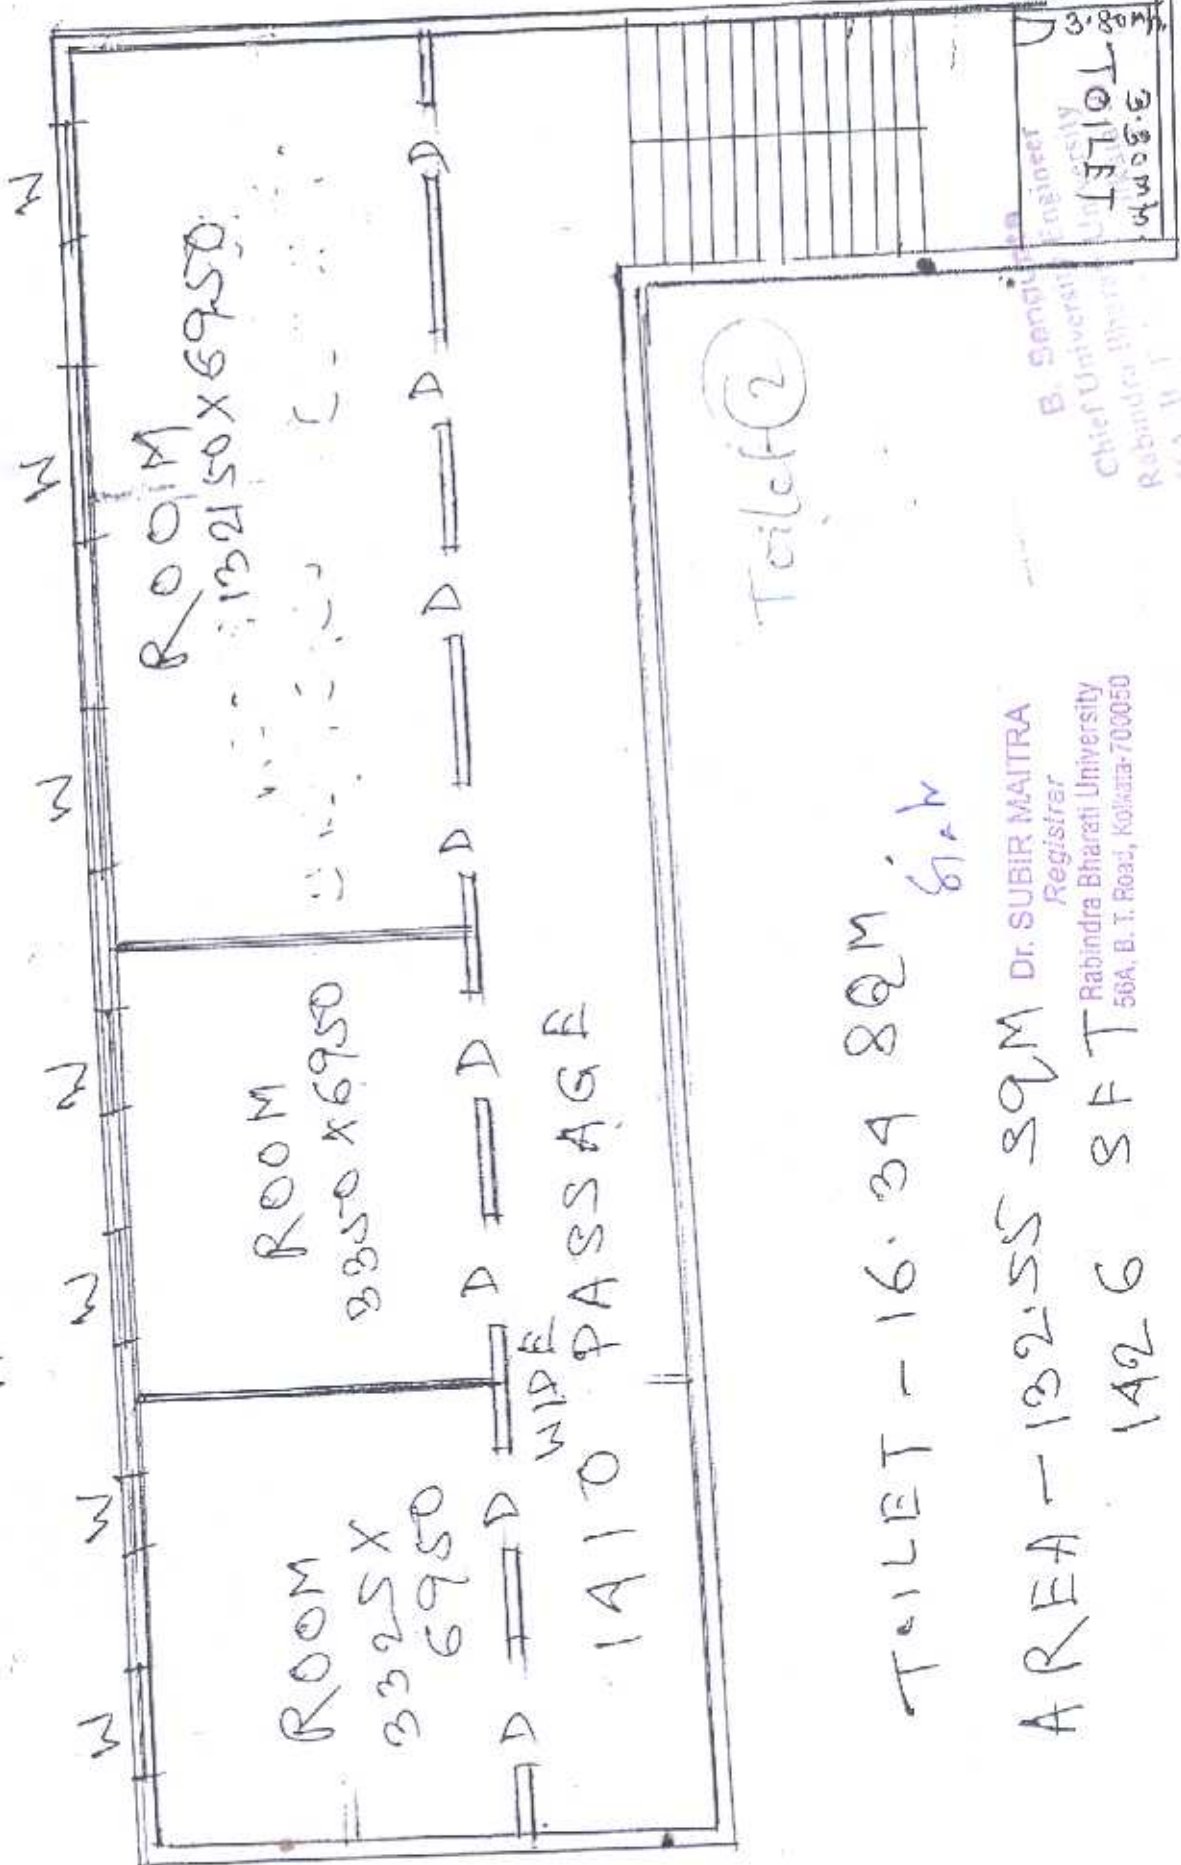 W W W W W W W
ROOM
3325 X
6950
ROOM
3350 X 6950
ROOM
13250 X 6950
D D D D D D D D
WIDE
1410 PASSAGE
Toilet-2
3.80m
TOILET
3.80m
TOILET - 16.34 SQM
AREA - 132.55 SQM
1426 SFT
Dr. SUBIR MAITRA
Registrar
Rabindra Bharati University
56A, B. T. Road, Kolkata-700050
B. Sengupta
Chief University Engineer
Rabindra Bharati University